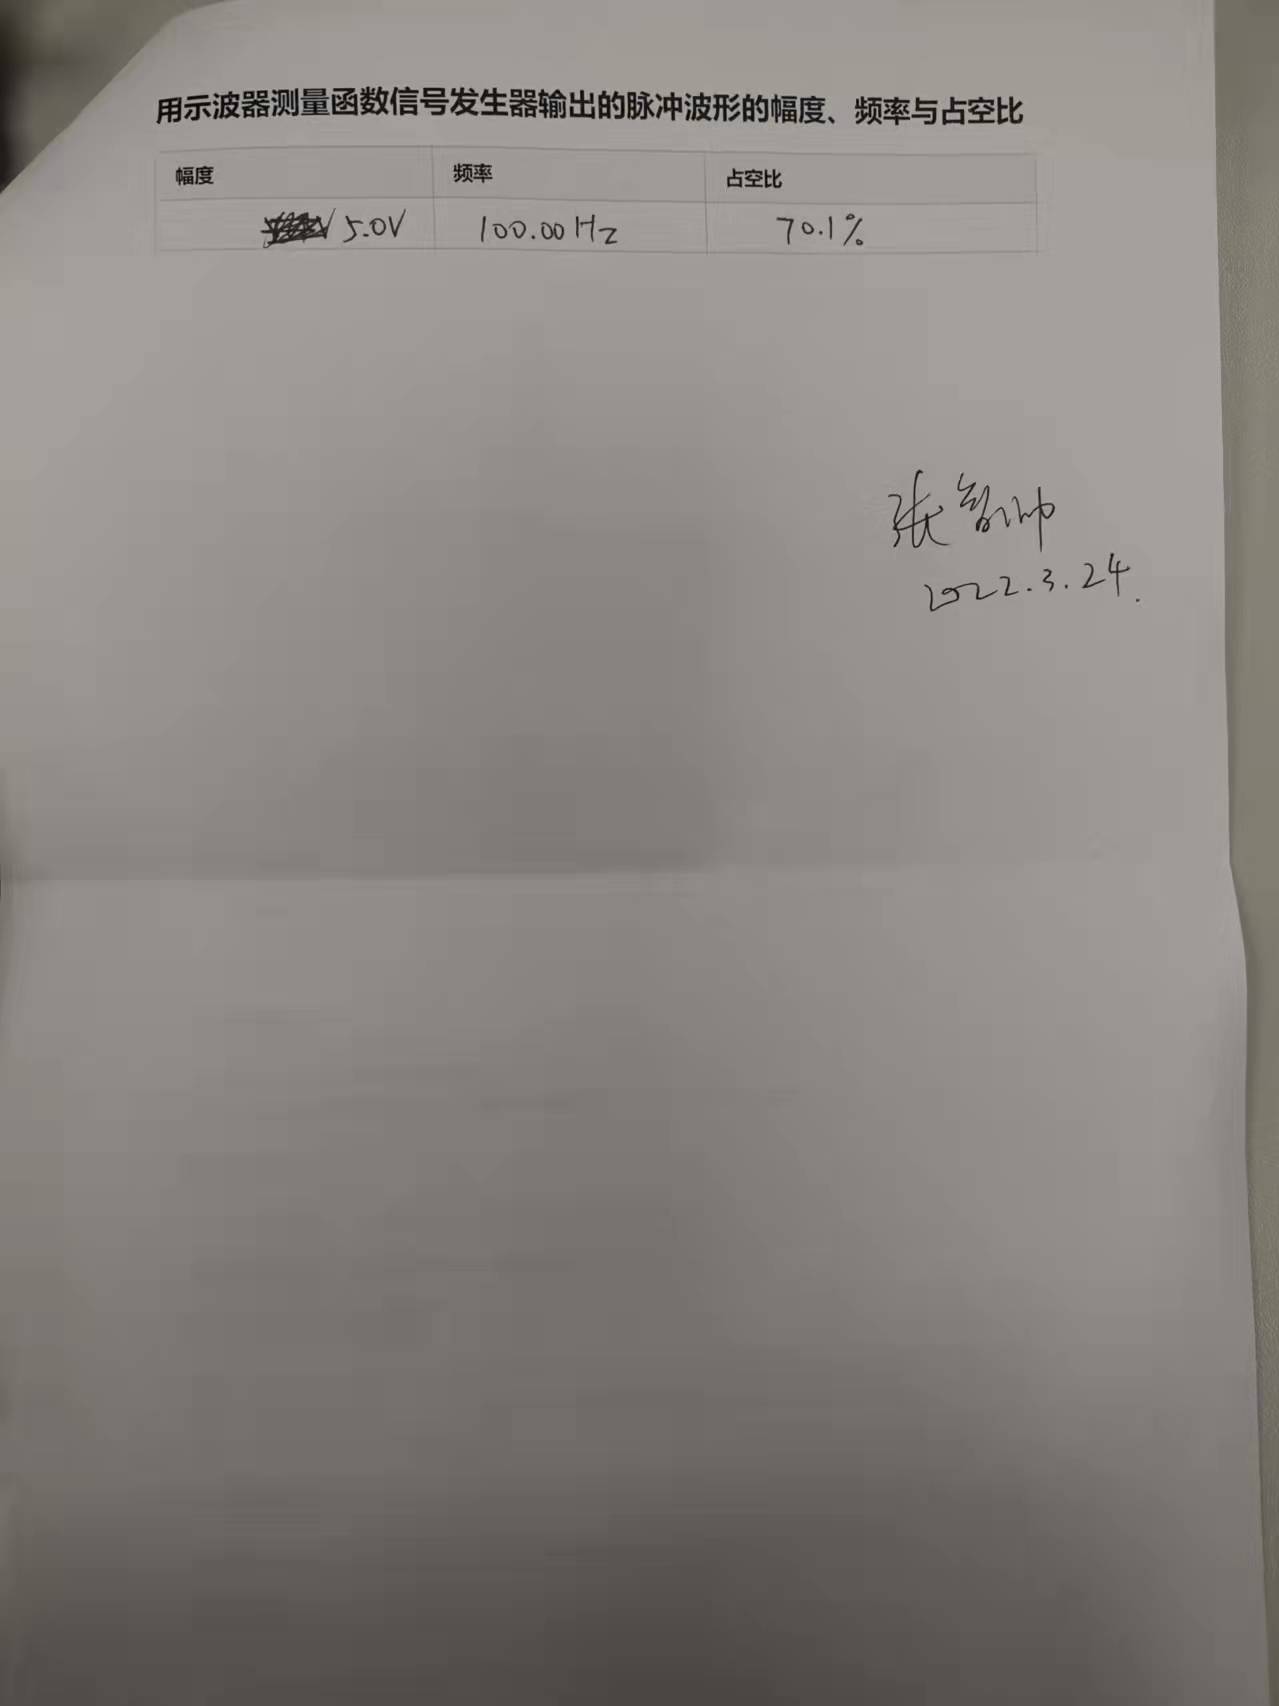 用示波器测量函数信号发生器输出的脉冲波形的幅度、频率与占空比
幅度 频率 占空比
5.0V 100.00Hz 70.1%
张智帅
2022.3.24.